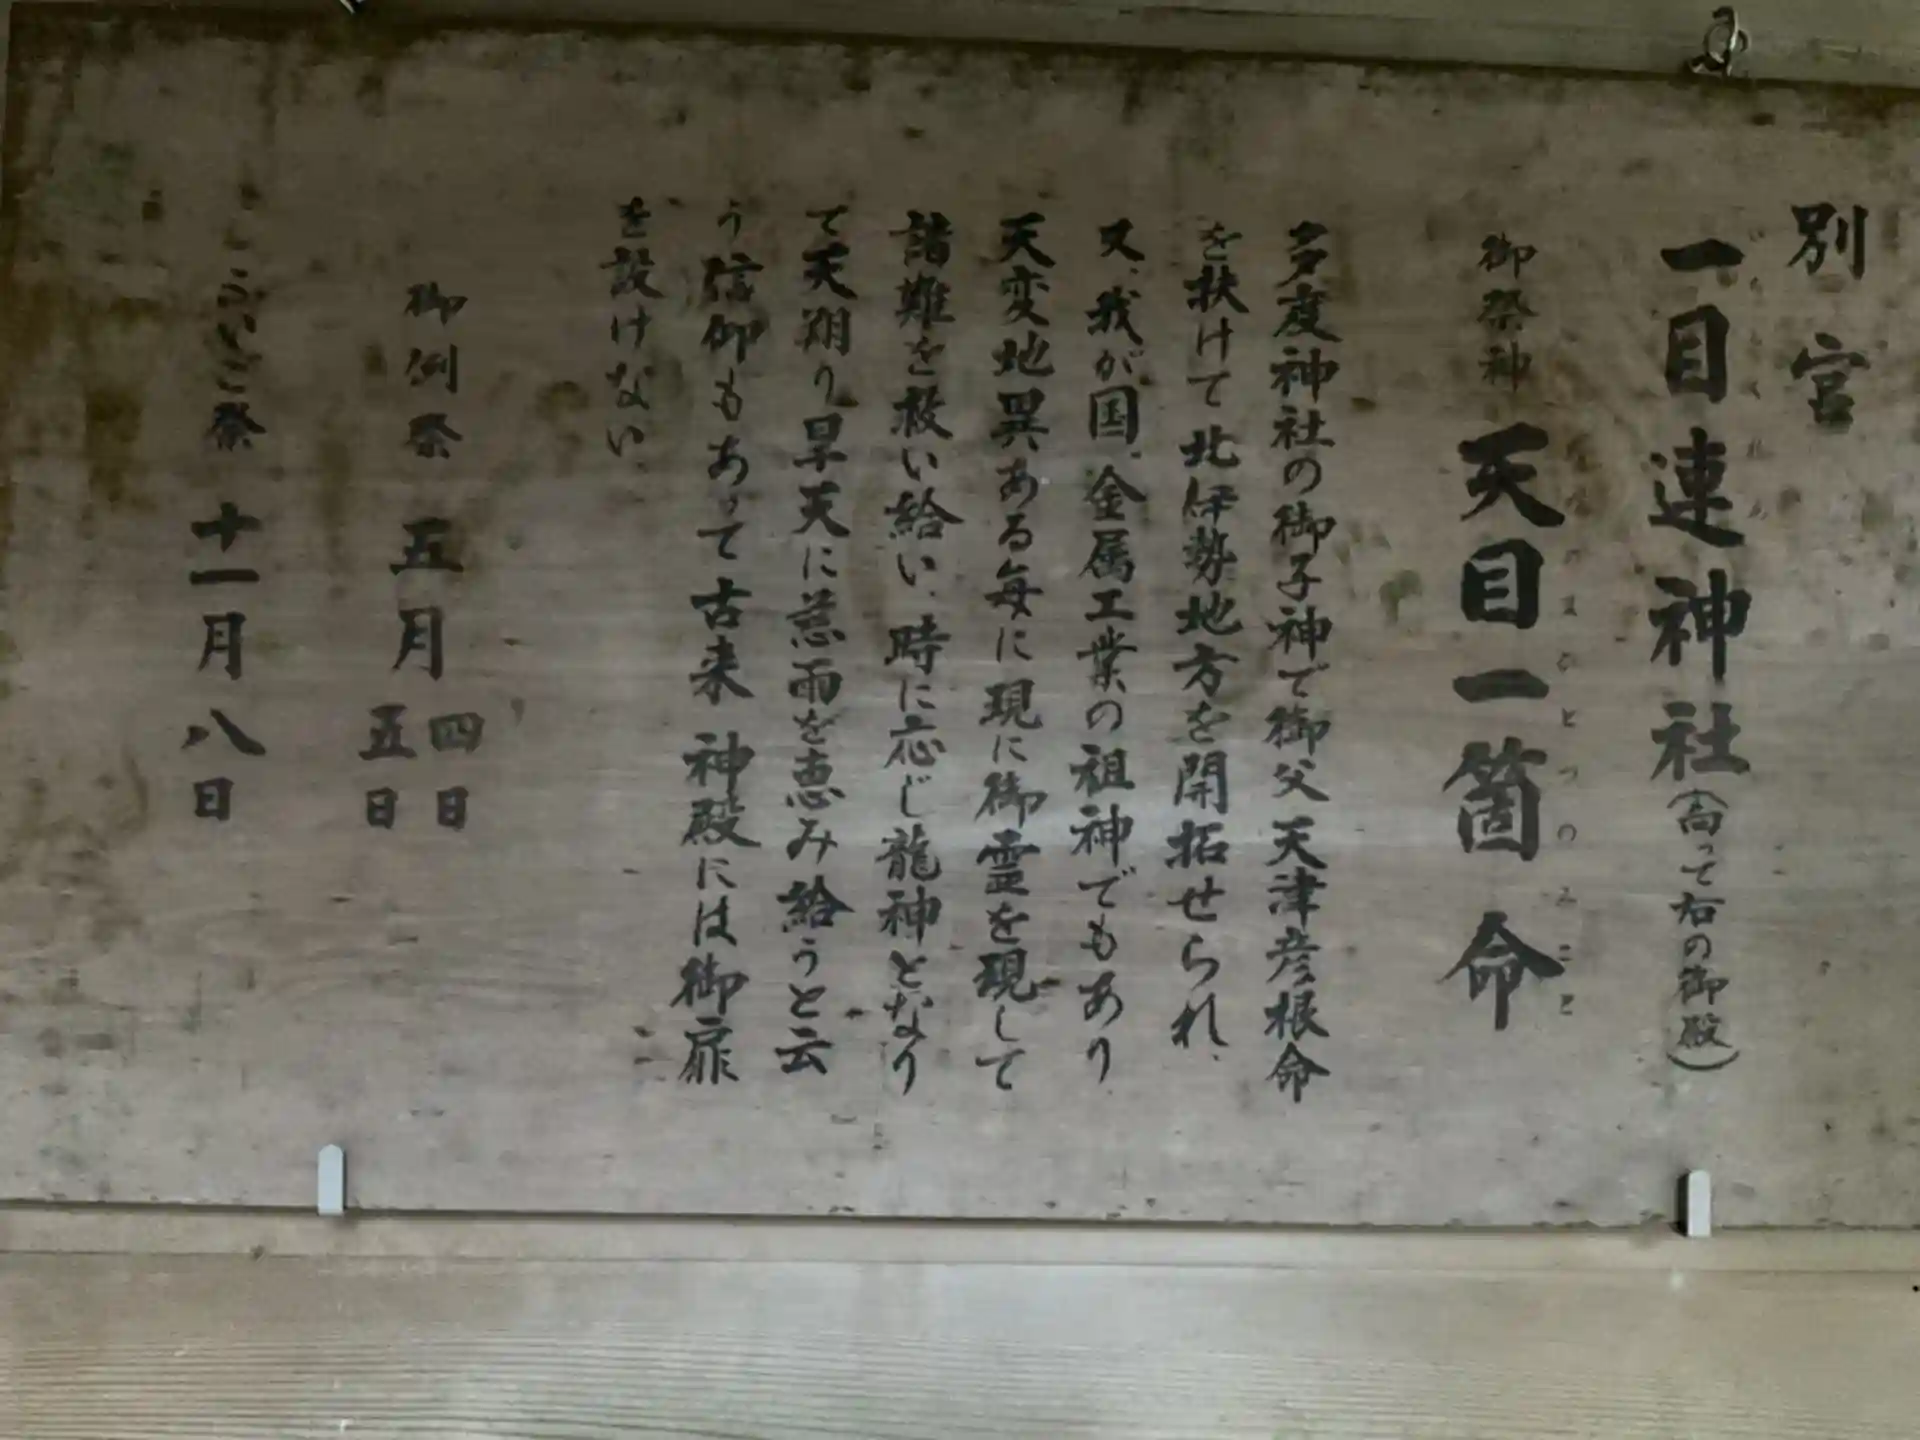 別宮
一目連神社(向って右の御殿)
いちもくれん
御祭神 天目一箇命
あめのまひとつのみこと
多度神社の御子神で御父天津彦根命
を扶けて北伊勢地方を開拓せられ、
又、我が国、金属工業の祖神でもあり
天変地異ある毎に現に御霊を現して
諸難を救い給い、時に応じ龍神となり
て天翔り旱天に慈雨を恵み給うと云
う信仰もあって古来神殿には御扉
を設けない、
御例祭 五月四日
五日
ふいご祭 十一月八日